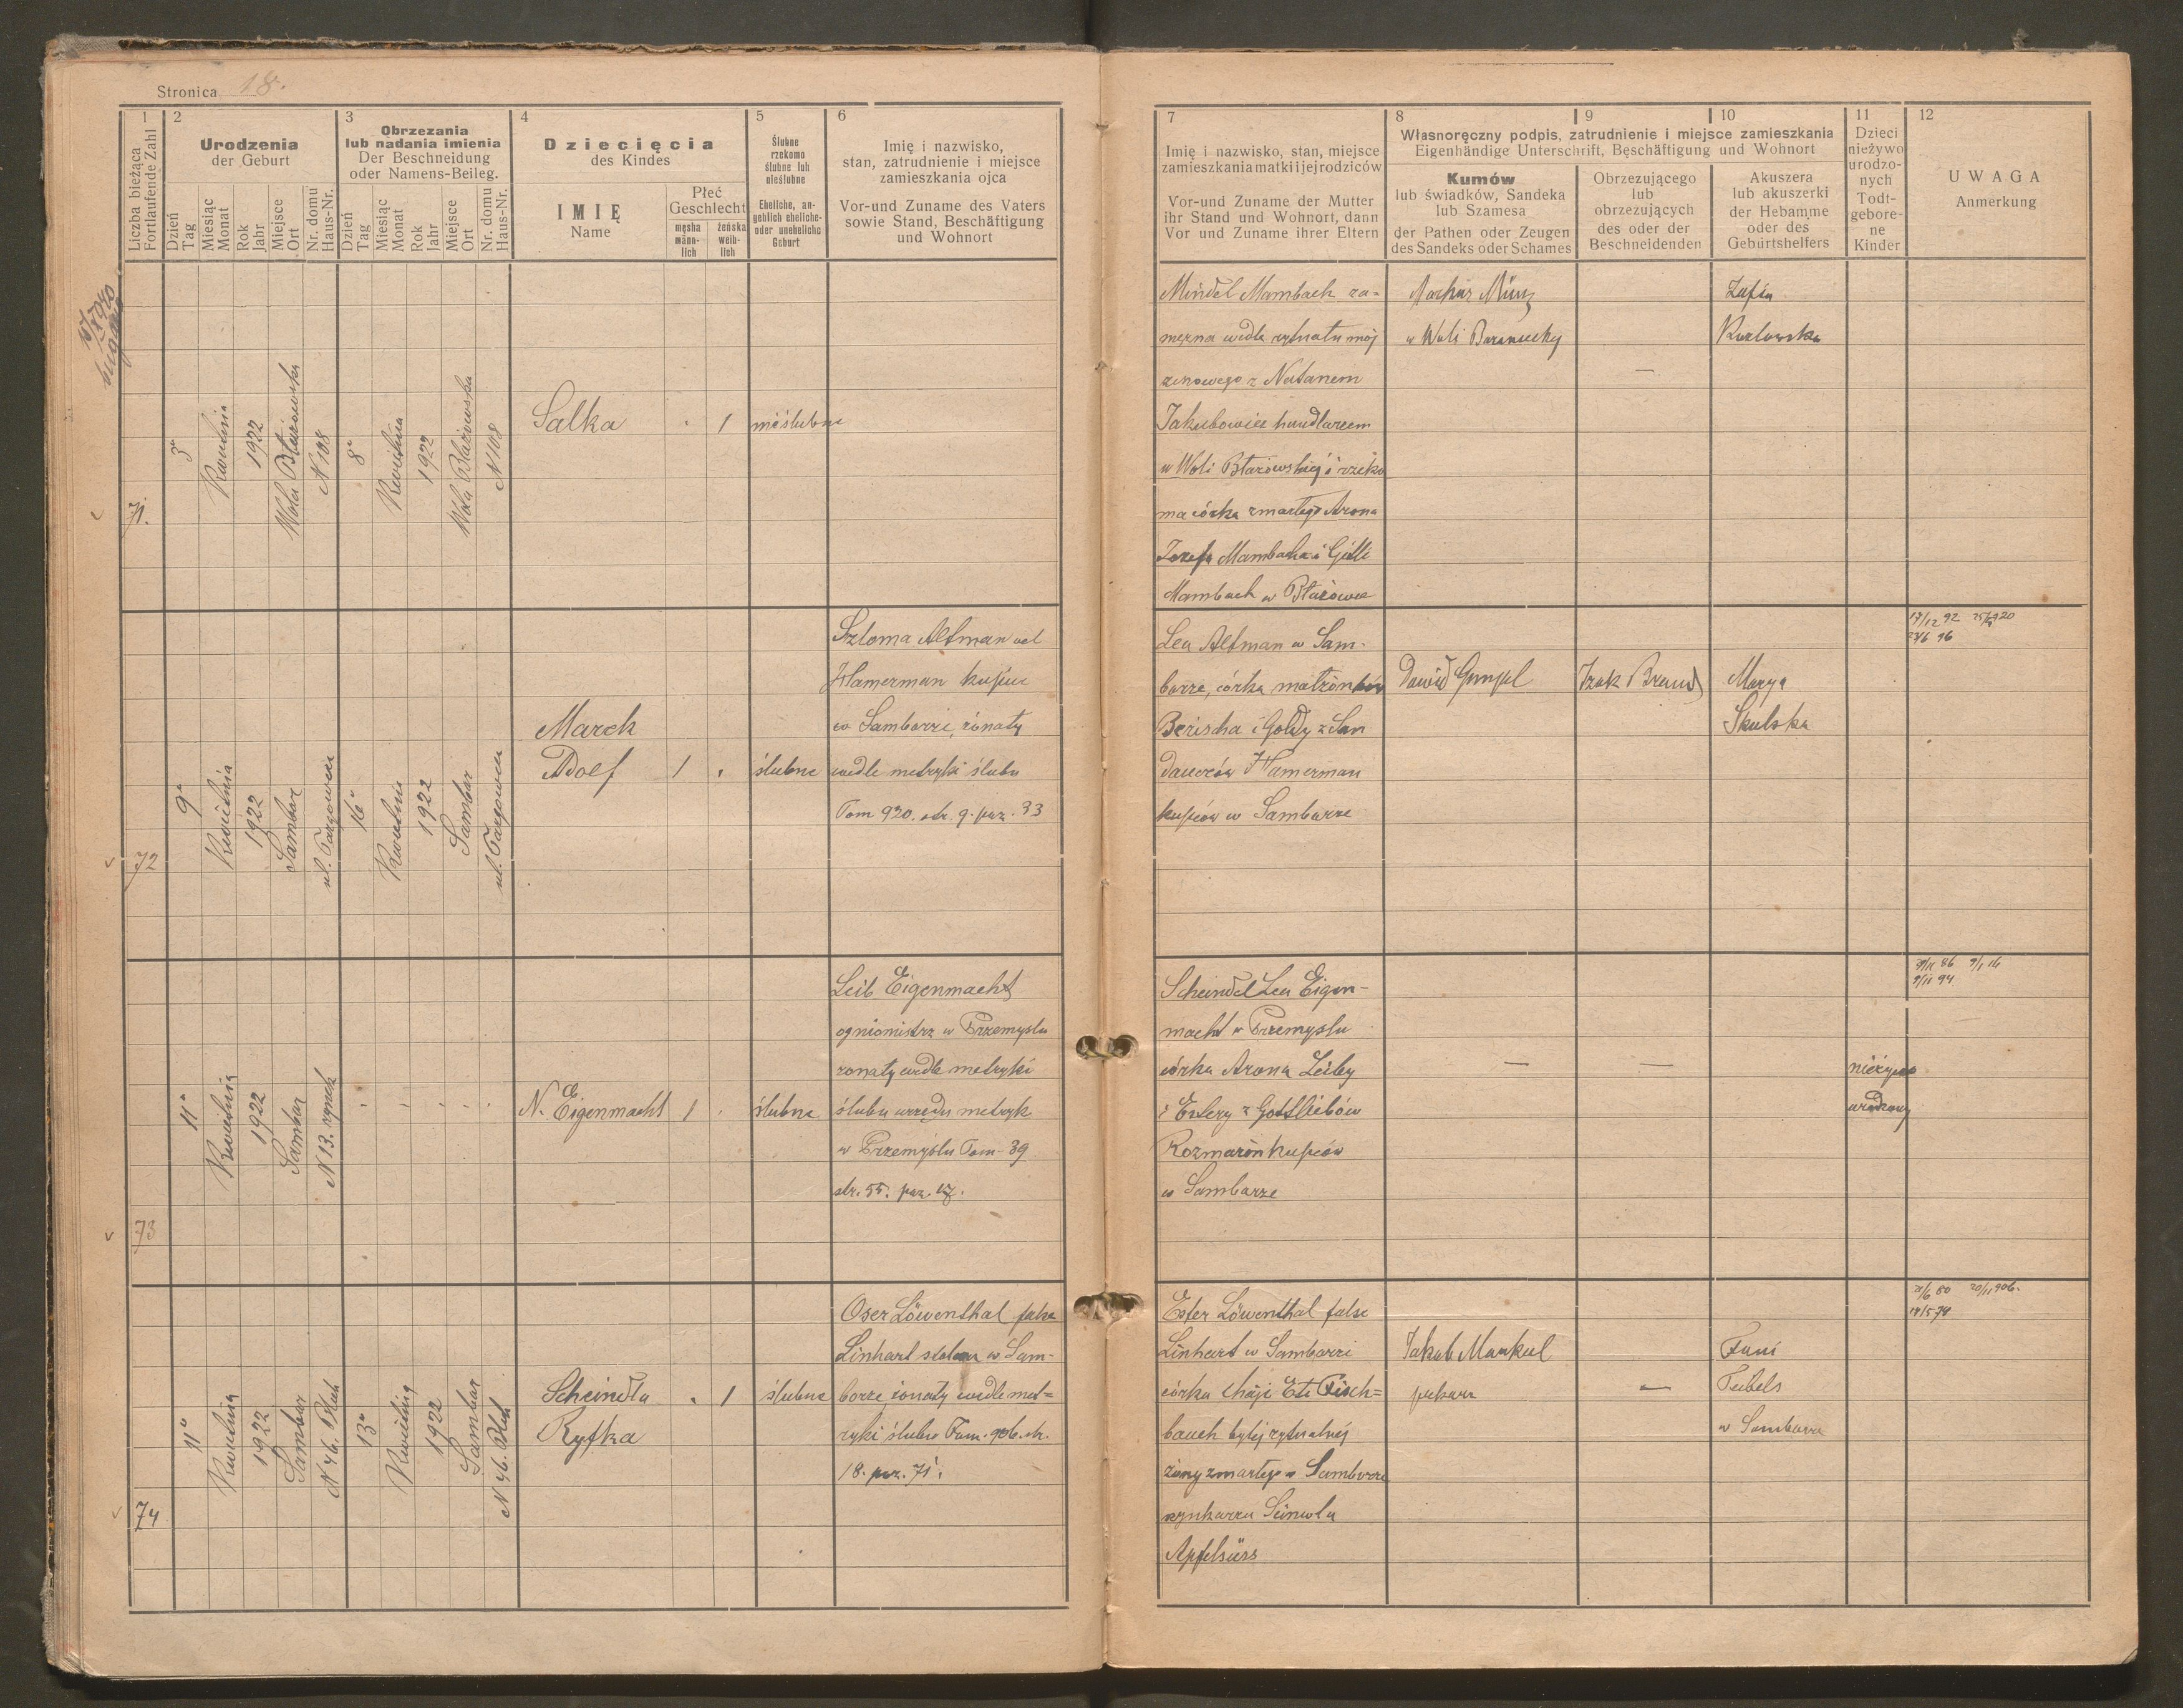 Stronica 18.
1
Liczba bieżąca
Fortlaufende Zahl
2
Urodzenia
der Geburt
Dzień
Tag
Miesiąc
Monat
Rok
Jahr
Miejsce
Ort
Nr. domu
Haus-Nr.
3
Obrzezania
lub nadania imienia
Der Beschneidung
oder Namens-Beileg.
Dzień
Tag
Miesiąc
Monat
Rok
Jahr
Miejsce
Ort
Nr. domu
Haus-Nr.
4
Dziecięcia
des Kindes
IMIĘ
Name
Płeć
Geschlecht
męska
männ-
lich
żeńska
weib-
lich
5
Ślubne
rzekomo
ślubne lub
nieślubne
Eheliche, an-
geblich eheliche-
oder uneheliche
Geburt
6
Imię i nazwisko,
stan, zatrudnienie i miejsce
zamieszkania ojca
Vor-und Zuname des Vaters
sowie Stand, Beschäftigung
und Wohnort
7
Imię i nazwisko, stan, miejsce
zamieszkania matki i jej rodziców
Vor-und Zuname der Mutter
ihr Stand und Wohnort, dann
Vor und Zuname ihrer Eltern
8
9
10
Własnoręczny podpis, zatrudnienie i miejsce zamieszkania
Eigenhändige Unterschrift, Beschäftigung und Wohnort
Kumów
lub świadków, Sandeka
lub Szamesa
der Pathen oder Zeugen
des Sandeks oder Schames
Obrzezującego
lub
obrzezujących
des oder der
Beschneidenden
Akuszera
lub akuszerki
der Hebamme
oder des
Geburtshelfers
11
Dzieci
nieżywo
urodzo-
nych
Todt-
gebore-
ne
Kinder
12
UWAGA
Anmerkung
71.
3
Kwietnia
1922
Wola Błażowska
N 108
8
Kwietnia
1922
Wola Błażowska
N 108
Salka
1
nieślubne
Mindel Mambach za-
mężna wedle rytuału mał
żenowego z Natanem
Jakubowicz handlarzem
w Woli Błażowskiej i rzeko
ma córka zmarłego Arona
Josefa Mambacha i Gitli
Mambach w Błażowie
Markus Münz
w Woli
Zofia
Kozłowska
72
9
Kwietnia
1922
Sambor
ul. Targowica
16
Kwietnia
1922
Sambor
ul. Targowica
Marek
Adolf
1
ślubne
Szloma Altman vel
Hamerman kupiec
w Samborze, żonaty
wedle metryki ślubu
Tom 920. str. 9. poz. 33
Lea Altman w Sam-
borze, córka małżonków
Berischa i Goldy z San
dauerów Hamerman
kupców w Samborze
Dawid Gimpel
Izak Brand
Marya
Skulska
17/12 92
96
73
11
Kwietnia
1922
Sambor
N 13. rynek
N. Eigenmacht
1
ślubne
Leib Eigenmacht
ogniomistrz w Przemyślu
żonaty wedle metryki
ślubu urzędu metryk
w Przemyślu Tom 39
str. 55. poz. 17.
Scheindel Lea Eigen-
macht w Przemyślu
córka Arona Leiby
i Estery z Gottliebów
Rozmarin kupców
w Samborze
nieżywo
urodzony
86 9/1 16
9/11 94
74
11
Kwietnia
1922
Sambor
N 46. Blich
13
Kwietnia
1922
Sambor
N 46. Blich
Scheindla
Ryfka
1
ślubne
Oser Löwenthal false
Linhart stolarz w Sam-
borze żonaty wedle met=
ryki ślubu Tom. 906. str.
18. poz. 71.
Ester Löwenthal false
Linhart w Samborze
córka Chaji Eti Fisch=
bauch byłej rytualnej
żony zmarłego w Samborze
szynkarza Seinwla
Apfelsüss
Jakob Mankul
piekarz
Fani
Teibels
w Samborze
80 20/11 906.
14/5 74